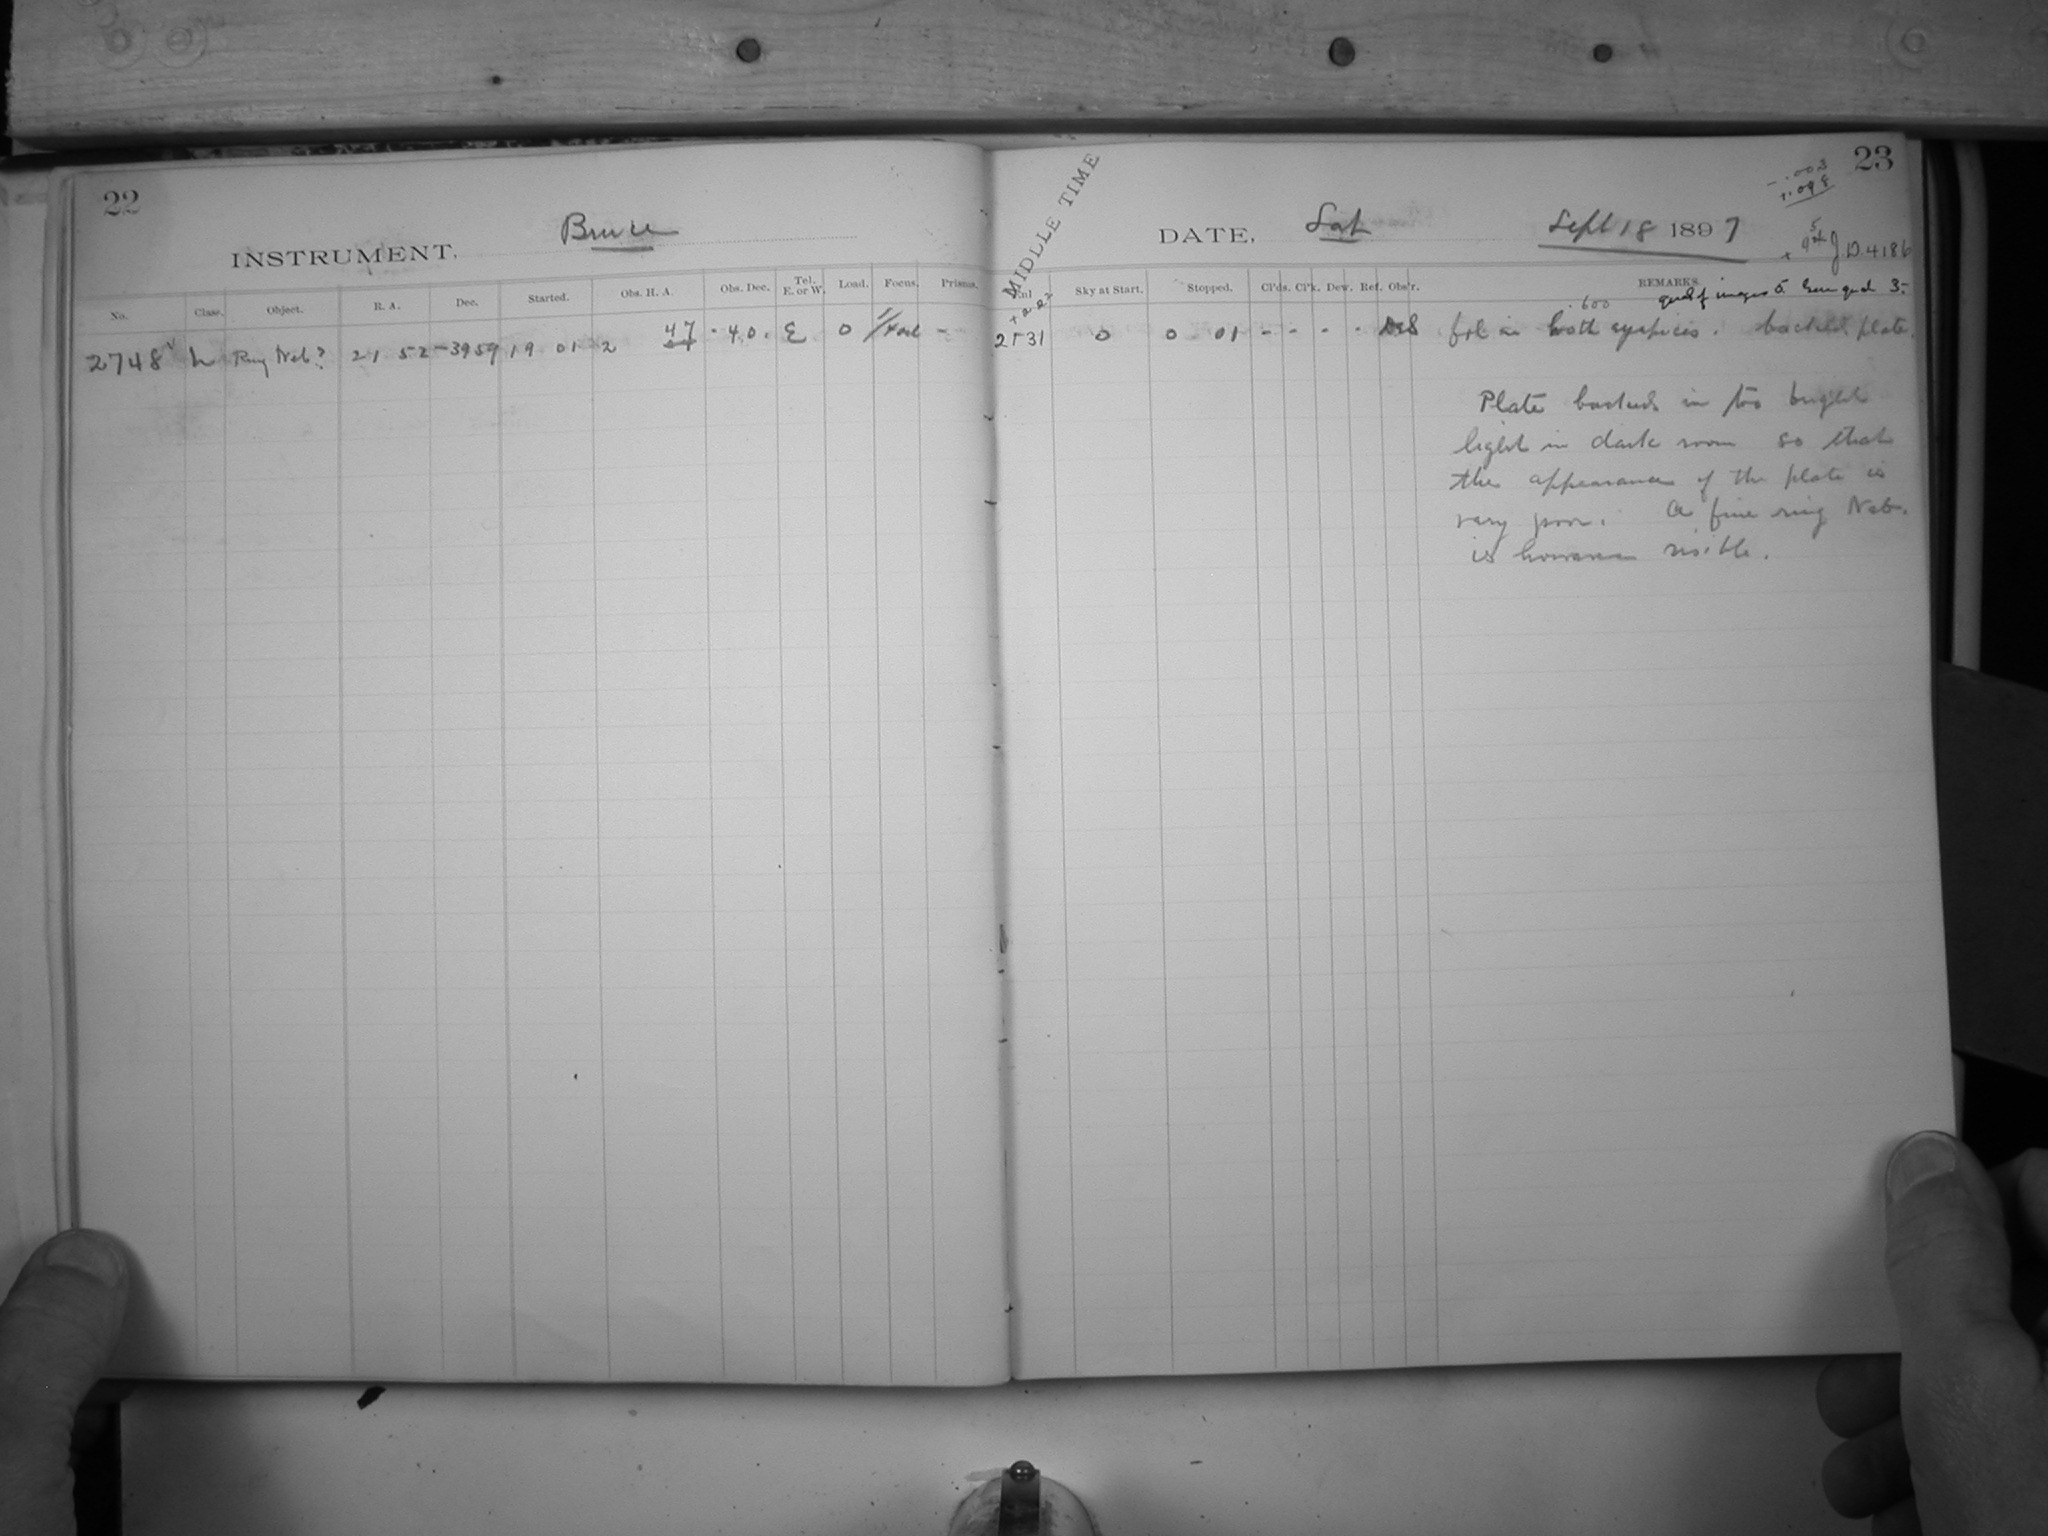 22
INSTRUMENT, Bruce
No. Class. Object. R. A. Dec. Started. Obs. H. A. Obs. Dec. Tel. E. or W. Load. Focus. Prisms.
2748 L Ring Neb? 21 52 -3959 19 01 2 47 -40. E 0
MIDLLE TIME
23
-.003
+.098
DATE, Sat Sept 18 1897
J.D. 4186
Sky at Start. Stopped. Cl'ds. Cl'k. Dew. Ref. Obs'r. REMARKS.
.600 qual of images 5. Gen qual 3-
21 31 0 0 01 - - - - fol in both eyepieces. backed plate.
Plate backed in too bright
light in dark room so that
the appearance of the plate is
very poor. A fine ring Neb.
is however visible.